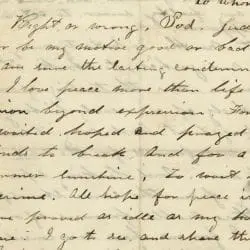 to whom
Right or wrong, God, jud
r be my motive good or bad
am sure the lasting condemn
I love peace more than life
nion beyond expression. For
waited, hoped and prayed
uds to break, And for a
rmer sunshine, To wait
crime. All hope for peace is
ve proved as idle as my ho
I go to see, and share the